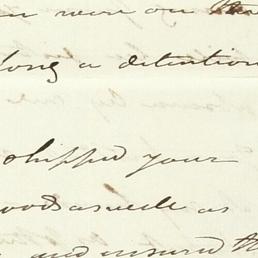 were on the
long a detention
shipped your
goods as well as
and insured th